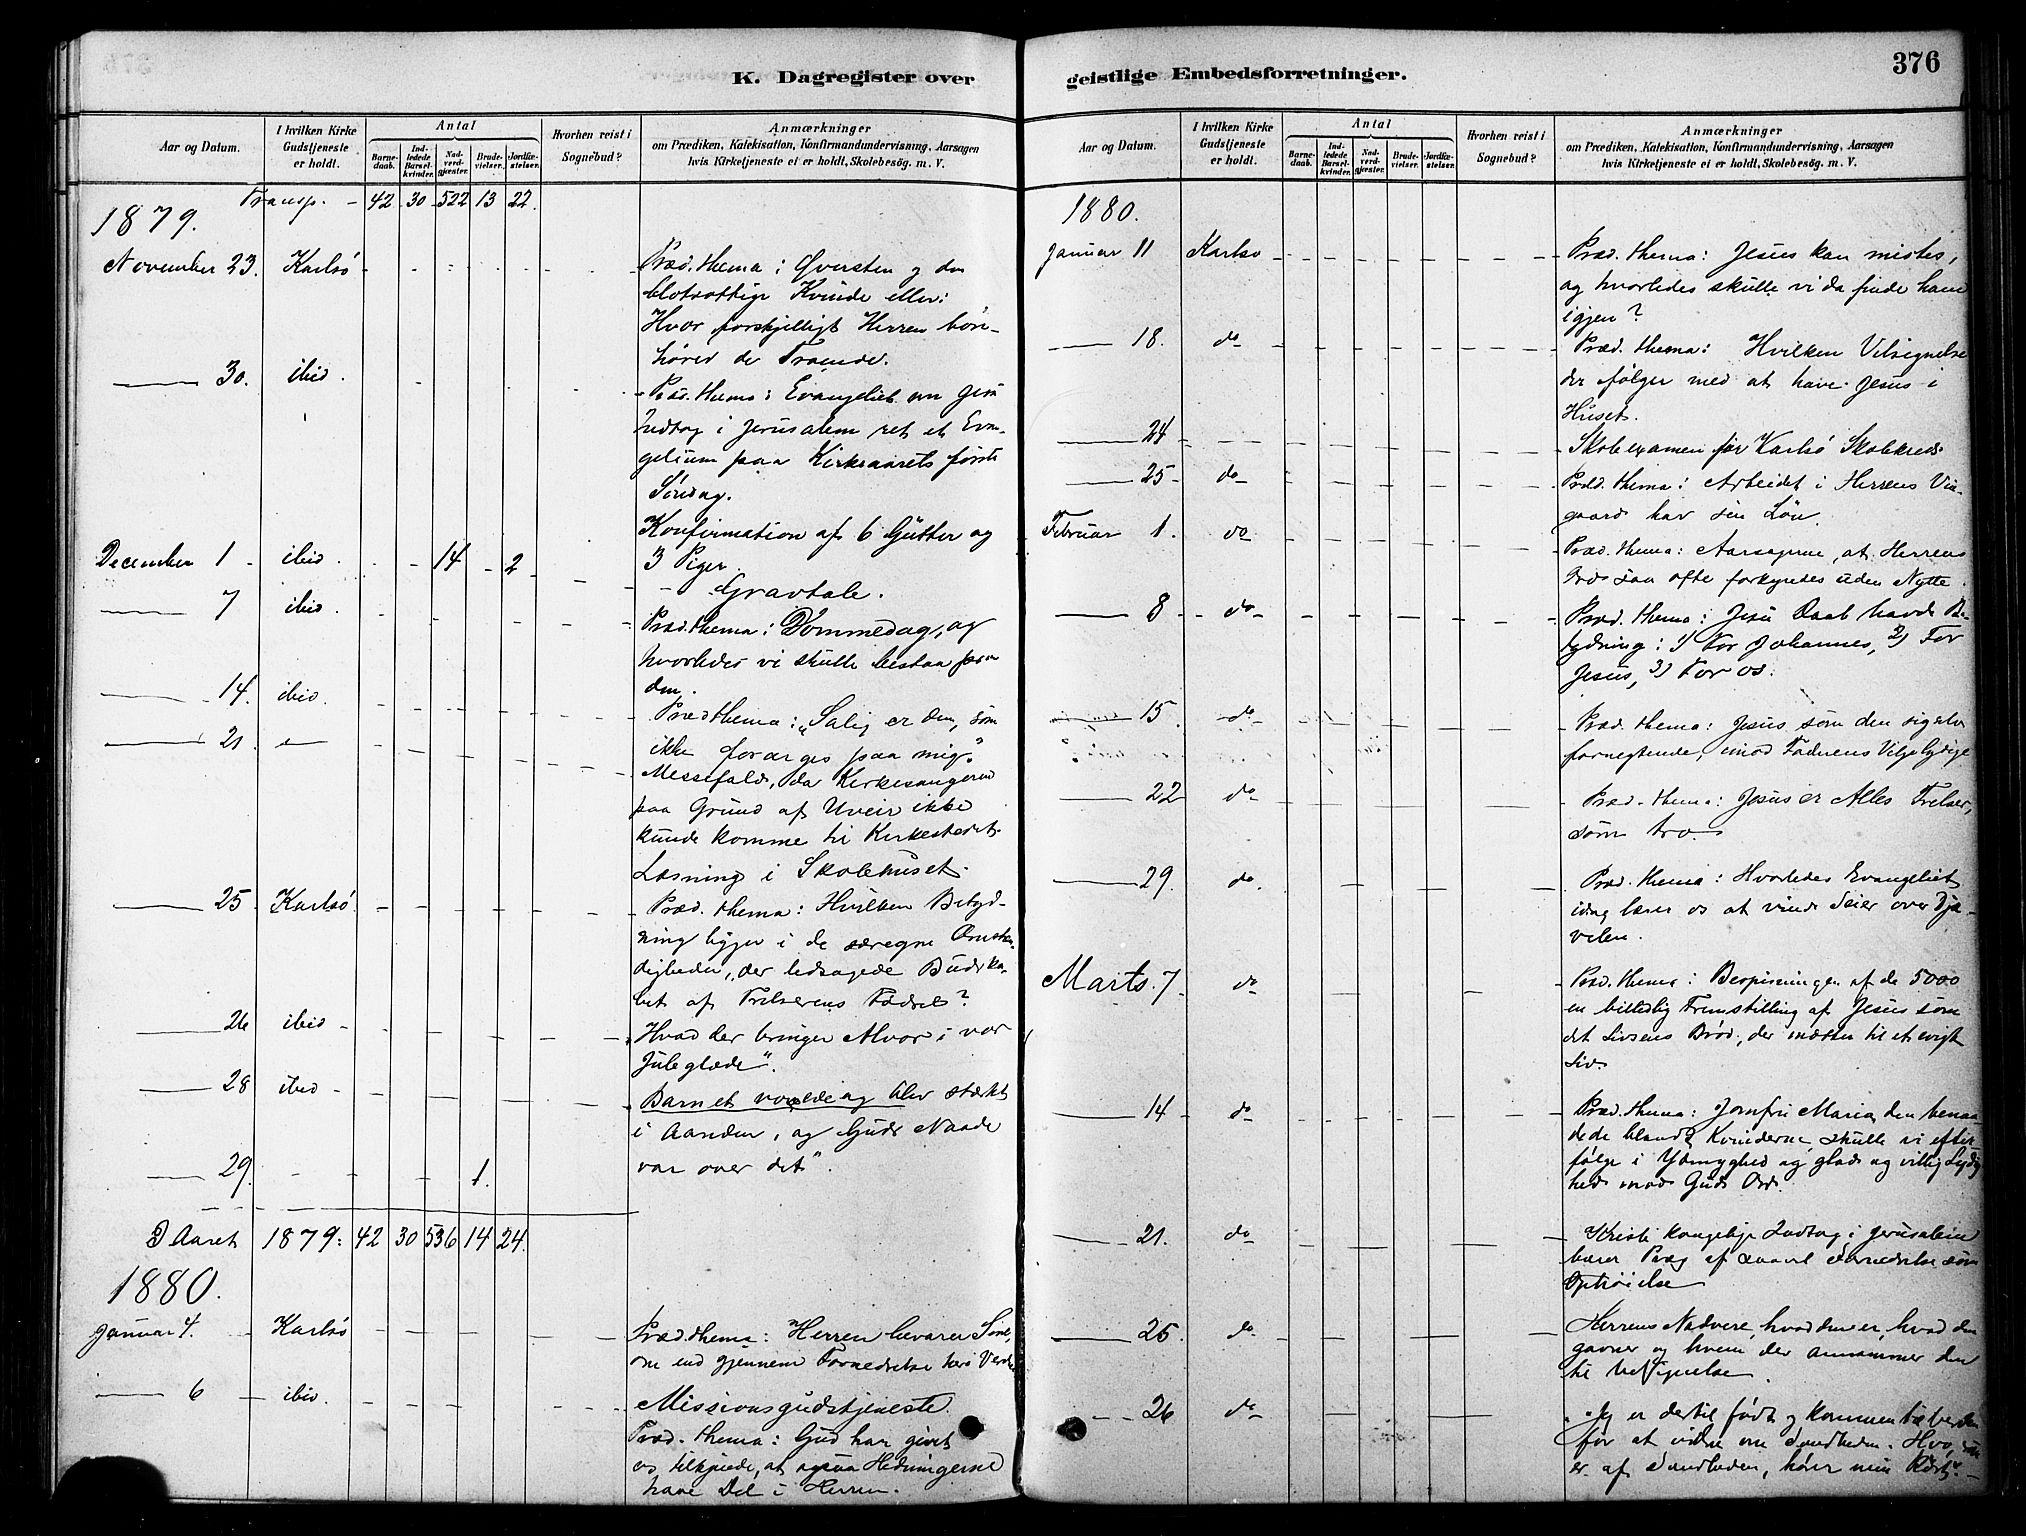 376
K. Dagregister over
geistlige Embedsforretninger.
Aar og Datum.
I hvilken Kirke
Gudstjeneste
er holdt.
Antal
Barne-
daab.
Ind-
ledede
Barsel-
kvinder.
Nad-
verd-
gjæster.
Brude-
vielser.
Jordfæ-
stelser.
Hvorhen reist i
Sognebud?
Anmærkninger
om Prædiken, Katekisation, Konfirmandundervisning, Aarsagen
hvis Kirketjeneste ei er holdt, Skolebesøg. m. V.
Transp. - 42 30 522 13 22.
1879.
November 23. Karlsö Præd. thema: Øversten og den
blotsottige Kvinde eller:
Hvor forskjelligt Herren bøn-
hører de Troende.
30. ibid. Præd. thema: Evangeliet om Jesu
Indtog i Jerusalem ret et Evan-
gelium paa Kirkeaarets første
Søndag.
Konfirmation af 6 Gutter og
December 1 ibid. 14 2 3 Piger.
Gravtale.
7 ibid. Præd. thema: Dommedag, og
hvorledes vi skulle bestaa paa
den.
14. ibid. Præd thema: "Salig er den, som
21. ikke forarges paa mig".
Messefald, da Kirkesangeren
paa Grund af Uveir ikke
kunde komme til Kirkestedet.
Læsning i Skolehuset.
25 Karlsö Præd. thema: Hvilken Betyd-
ning ligger i de særegne Omstæn-
digheder, der ledsagede Budska-
bet af Frelserens Fødsel?
26 ibid Hvad der bringer Alvor i vor
Juleglæde".
28 ibid Barnet voxede og blev stærkt
i Aanden, og Guds Naade
var over det".
29. 1.
I Aaret 1879: 42 30 536 14 24.
1880.
Januar 4. Karlsö Præd. thema: Herren bevarer Sine,
om end gjennem Fornedrelse her i Verden
6 ibid. Missionsgudstjeneste.
Præd. thema: Gud har givet
os tilkjende, at ogsaa Hedningerne
have Del i Herren.
Aar og Datum.
I hvilken Kirke
Gudstjeneste
er holdt.
Antal
Barne-
daab.
Ind-
ledede
Barsel-
kvinder.
Nad-
verd-
gjæster.
Brude-
vielser.
Jordfæ-
stelser.
Hvorhen reist i
Sognebud?
Anmærkninger
om Prædiken, Katekisation, Konfirmandundervisning, Aarsagen
hvis Kirketjeneste ei er holdt, Skolebesøg. m. V.
1880.
Januar 11 Karlsö Præd. thema: Jesus kan mistes,
og hvorledes skulle vi da finde ham
igjen?
18. do Præd. thema: Hvilken Velsignelse
der følger med at have Jesus i
Huset.
24 Skoleexamen for Karlsö Skolekreds.
25 do Præd. thema: Arbeidet i Herrens Vin-
gaard har sin Løn.
Februar 1. do Præd. thema: Aarsagerne, at Herrens
Ord saa ofte forkyndes uden Nytte.
8 do Præd. thema: Jesu Daab havde Be-
tydning: 1) For Johannes, 2) For
Jesus, 3) For os.
15. do Præd. thema: Jesus som den sig selv
fornegtende, imod Faderens Vilje lydige
22 do Præd. thema: Jesus er Alles Frelser,
som tro.
29. do. Præd. thema: Hvorledes Evangeliet
idag lærer os at vinde Seier over Djæ-
velen.
Marts. 7 do Præd. thema: Bespisningen af de 5000
en billedlig Fremstilling af Jesus som
det Livsens Brød, der mætter til et evigt
Liv.
14 do Præd. thema: Jomfru Maria, den benaa-
dede blandt Kvinderne skulle vi efter-
følge i Ydmyghed og glad og villig Lydig-
hed mod Guds Ord.
21. do Kristi kongelige Indtog i Jerusalem
bærer Præg af saavel Fornedrelse som
Ophøielse
25. do Herrens Nadvere, hvad den er, hvad den
gavner og hvem der annammer den
til Velsignelse.
26 do "Jeg er dertil født og kommen til Verden
for at vidne om Sandheden. Hver, som
er af Sandheden, hører min Røst".